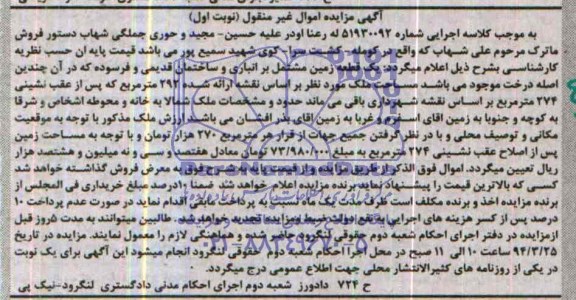 آگهی مزایده اموال غیر منقول (نوبت اول)
به موجب کلاسه اجرایی شماره ۵۱۹۳۰۰۹۲ له رعنا اودر علیه حسین- مجید و حوری جملگی شهاب دستور فروش
ماترک مرحوم علی شهاب که واقع در کومله- کشت سرا-کوی شهید سمیع پور می باشد قیمت پایه ان حسب نظریه
کارشناسی بشرح ذیل اعلام میگردد یک قطعه زمین مشتمل بر انباری و ساختمان قدیمی و فرسوده که در آن چندین
اصله درخت موجود می باشد ملک مورد نظر بر اساس نقشه ارائه شده ۲۹۲ مترمربع که پس از عقب نشینی
۲۷۴ مترمربع بر اساس نقشه شهرداری باقی می ماند حدود و مشخصات ملک شمالا به خانه و محوطه اشخاص و شرقا
به کوچه و جنوبا به زمین اقای استوم و غربا به زمین اقای بذر افشان می باشد ارزش ملک مذکور با توجه به موقعیت
مکانی و توصیف محلی و با در نظر گرفتن جمیع جهات از قرار هر مترمربع ۲۷۰ هزار تومان و با توجه به مساحت زمین
پس از اصلاح عقب نشینی ۲۷۴ مترمربع به مبلغ ۷۳/۹۸۰/۰۰۰ تومان معادل هفتصد و سی و نه میلیون و هشتصد هزار
ریال تعیین میگردد. اموال فوق الذکر از طریق مزایده و از قیمت پایه به شرح فوق به معرض فروش گذاشته خواهد شد
کسی که بالاترین قیمت را پیشنهاد نماید برنده مزایده اعلام خواهد شد ضمنا ۱۰درصد مبلغ خریداری فی المجلس از
برنده مزایده اخذ و برنده مکلف است ظرف مدت یک ماه نسبت به پرداخت مابقی اقدام نماید در صورت عدم پرداخت ۱۰
درصد پس از کسر هزینه های اجرایی به نفع دولت ضبط و مزایده تجدید خواهد شد. طالبین میتوانند به مدت ۵روز قبل
ازمزایده در دفتر اجرای احکام شعبه دوم حقوقی لنگرود حاضر شده و هماهنگی لازم را معمول نمایند. مزایده در تاریخ
۹۴/۳/۲۵ ساعت ۱۰ الی ۱۱ صبح در محل اجرا احکام شعبه دوم حقوقی لنگرود انجام میشود این آگهی برای یک نوبت
در یکی از روزنامه های کثیرالانتشار محلی جهت اطلاع عمومی درج میگردد.
ح ۷۲۴ دادورز شعبه دوم اجرای احکام مدنی دادگستری لنگرود-نیک پی
۰۲۱-۸۸۳۴۹۶۷۰-۵